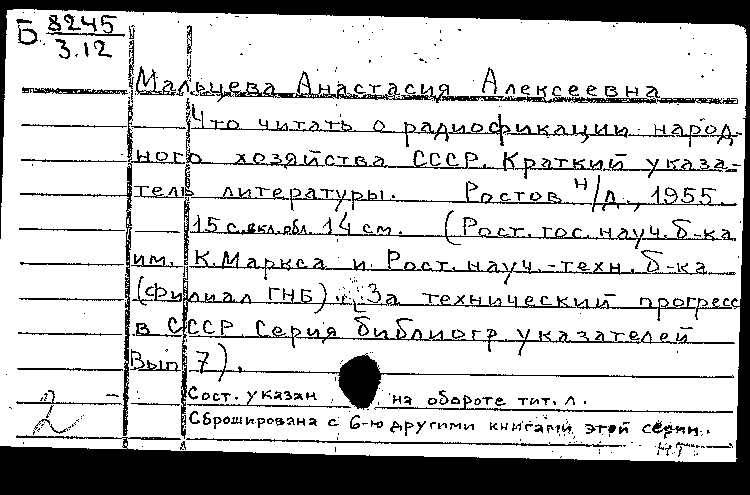 Б 8245
3.12
Мальцева Анастасия Алексеевна
Что читать о радиофикации народ-
ного хозяйства СССР. Краткий указа-
тель литературы. Ростов н/Д., 1955.
15 с. вкл. обл. 14 см. (Рост. гос. науч. б-ка
им. К. Маркса и Рост. науч.-техн. б-ка
(филиал ГНБ). За технический прогресс
в СССР Серия библиогр указателей
Вып 7).
Сост. указан на обороте тит. л.
Сброширована с 6-ю другими книгами этой серии.
2 НТ